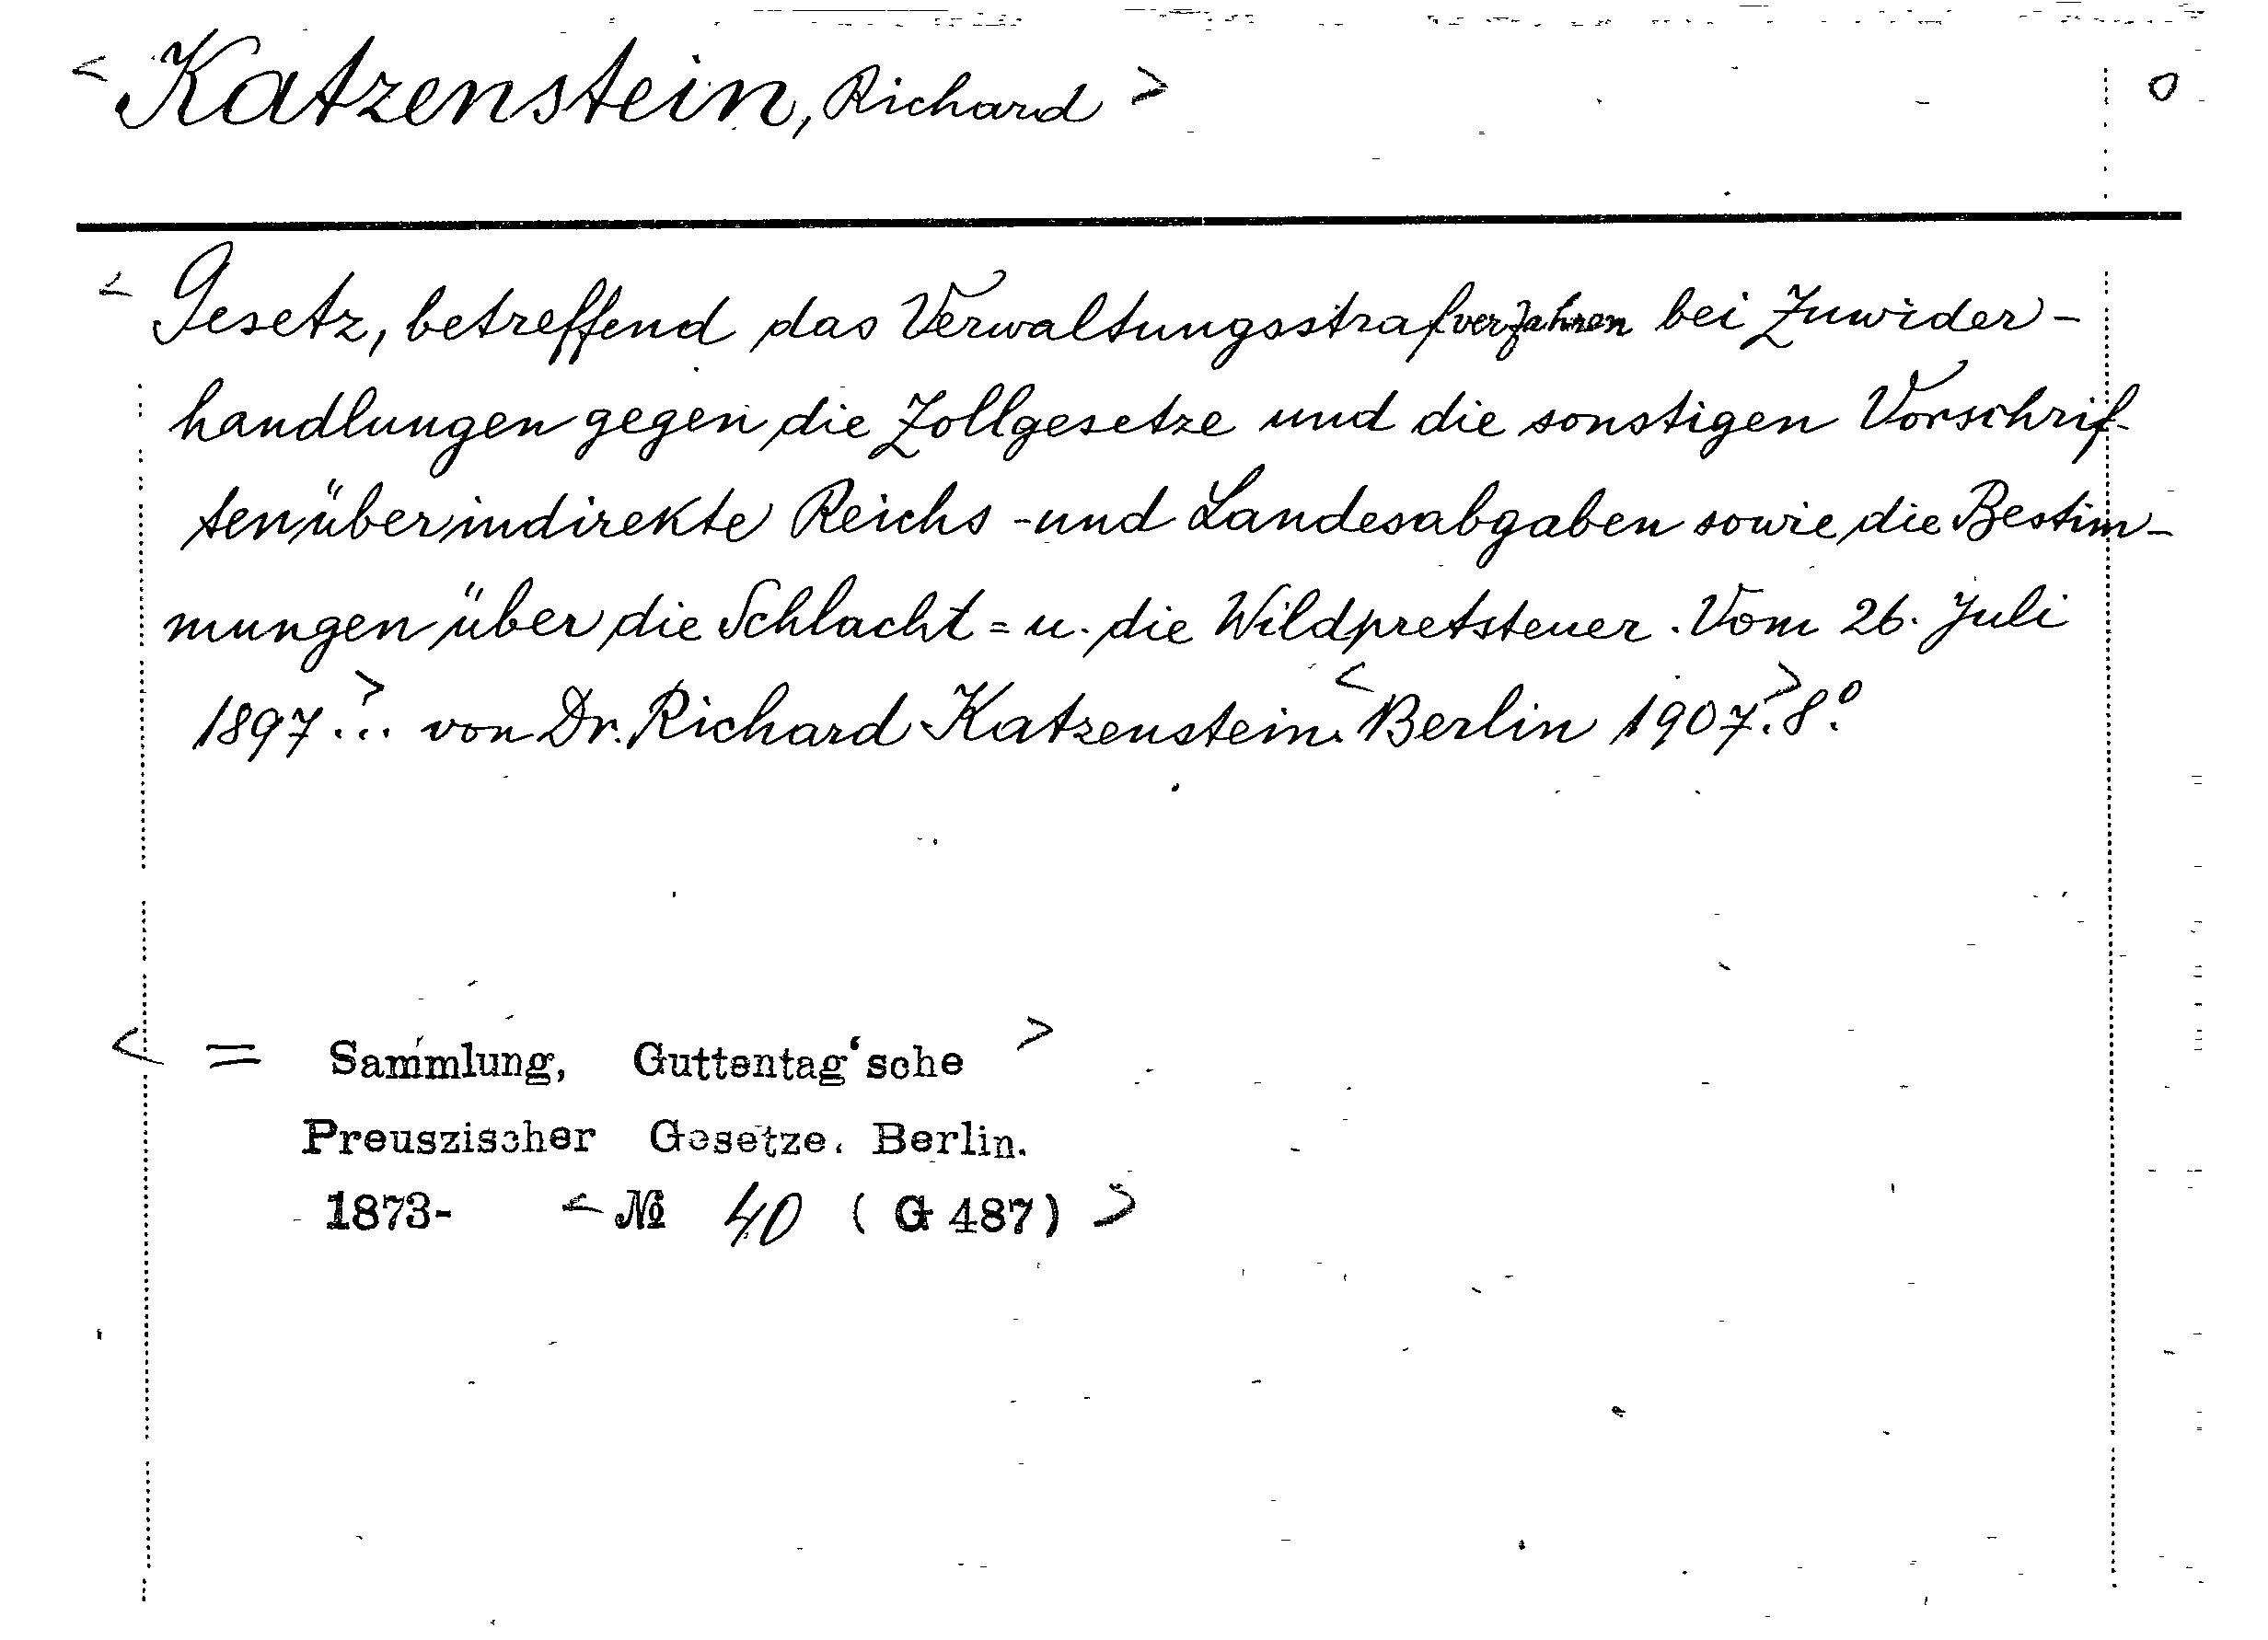 < Katzenstein, Richard > 0
< Gesetz, betreffend das Verwaltungsstrafverfahren bei Zuwider-
handlungen gegen die Zollgesetze und die sonstigen Vorschrif-
ten über indirekte Reichs- und Landesabgaben sowie die Bestim-
mungen über die Schlacht= u. die Wildpretsteuer. Vom 26. Juli
1897 > ... von Dr. Richard Katzenstein. < Berlin 1907 >. 8°.
< = Sammlung, Guttentag'sche >
Preuszischer Gesetze. Berlin.
1873- < № 40 (G 487) >